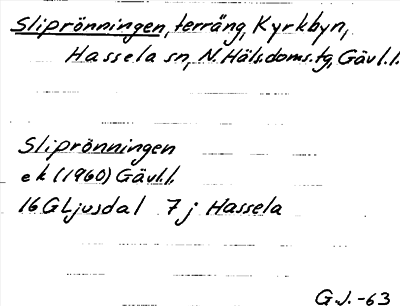 Sliprönningen, terräng, Kyrkbyn,
Hassela sn, N. Häls. doms. tg, Gävl.l.
Sliprönningen
ek (1960) Gävl.l.
16G Ljusdal 7j Hassela
G.J.-63